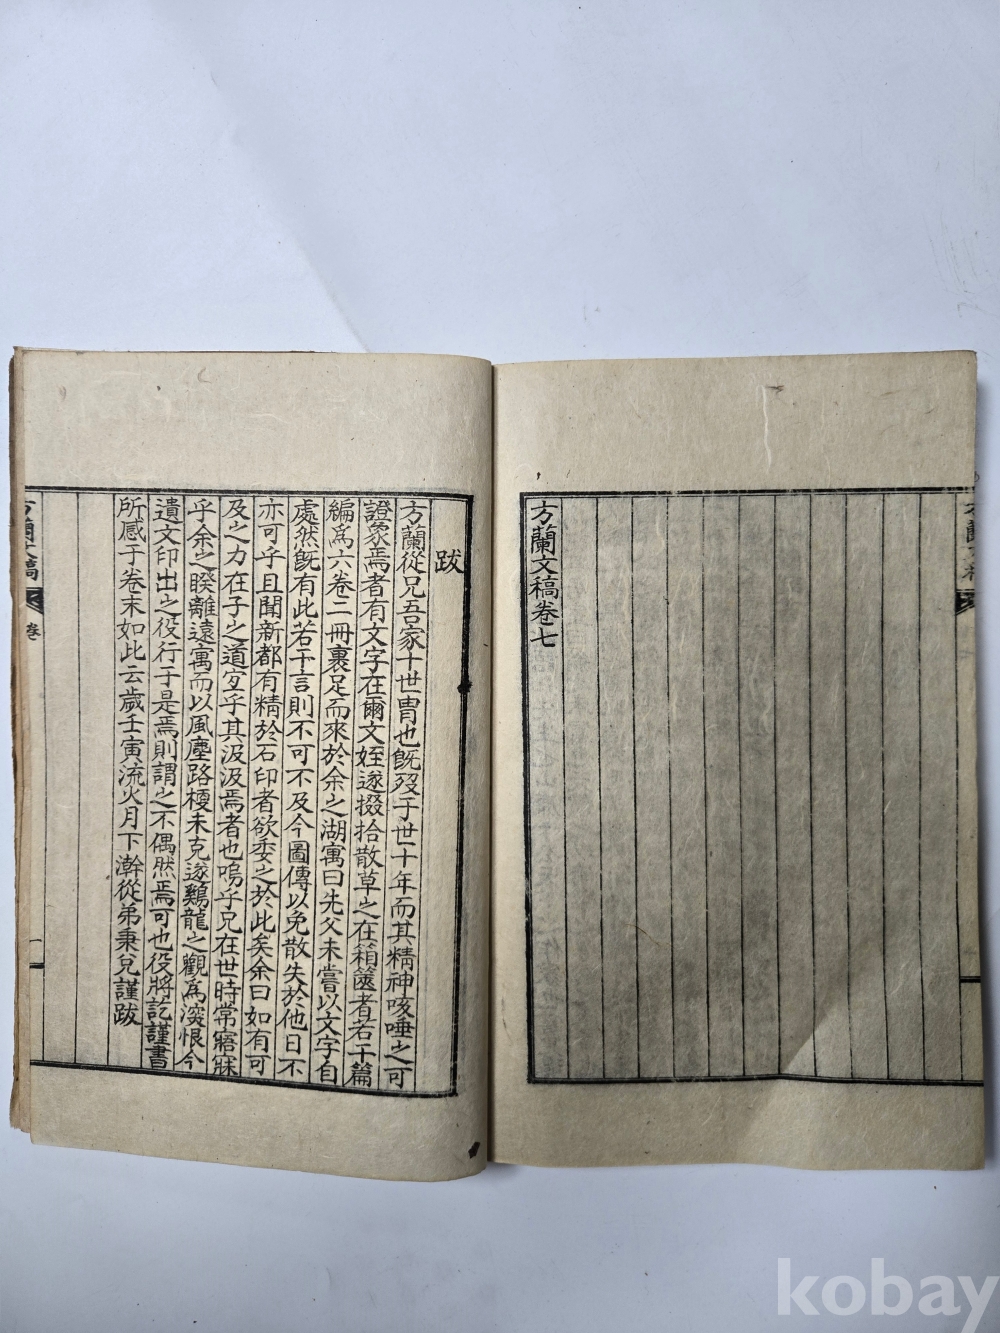 方蘭文稿卷七
跋
方蘭從兄吾家十世胄也旣歿于世十年而其精神咳唾之可
證象焉者有文字在爾文姪遂掇拾散草之在箱篋者若干篇
編爲六卷二冊裹足而來於余之湖寓曰先父未嘗以文字自
處然旣有此若干言則不可不及今圖傳以免散失於他日不
亦可乎且聞新都有精於石印者欲委之於此矣余曰如有可
及之力在子之道宜乎其汲汲焉者也嗚乎兄在世時常寤寐
乎余之睽離遠寓而以風塵路梗未克遂鷄龍之觀爲深恨今
遺文印出之役行于是焉則謂之不偶然焉可也役將訖謹書
所感于卷末如此云歲壬寅流火月下澣從弟秉兌謹跋
方蘭文稿
卷
一
kobay